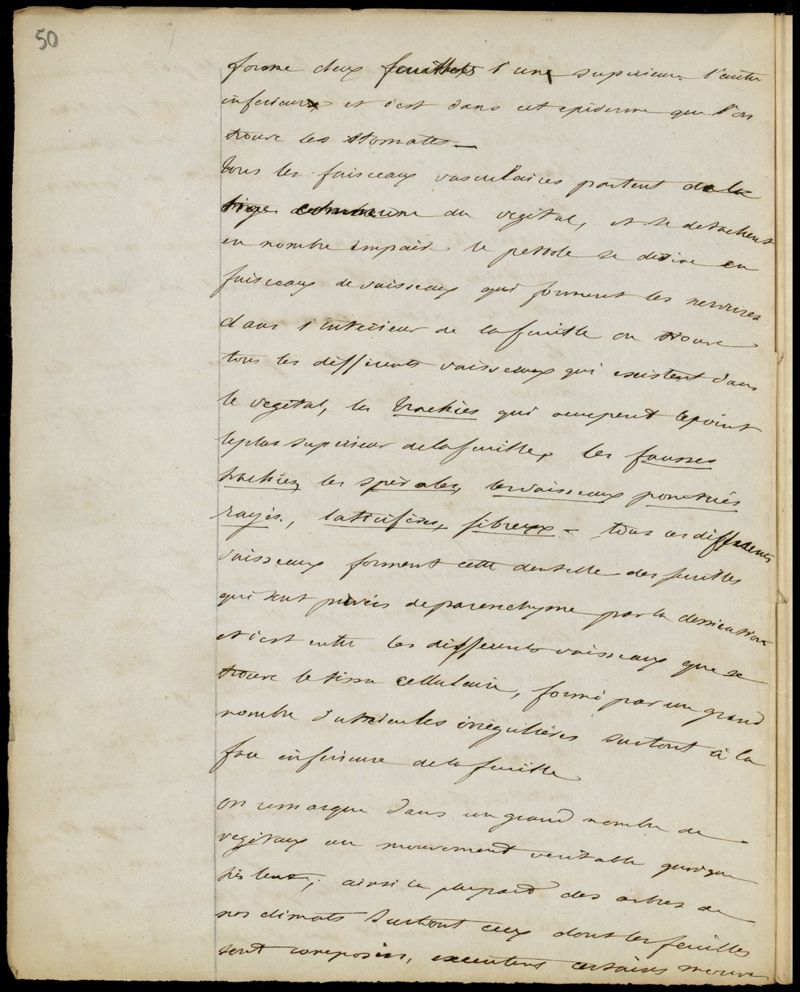 50
forme deux feuillets l'une superieure l'autre
inferieure et c'est dans cet epiderme que l'on
trouve les stomates —
Tous les faisceaux vasculaires partent de la
tige commune du vegetal, et se detachent
en nombre impair le petiole se divise en
faisceaux de vaisseaux qui forment les nervures
dans l'interieur de la feuille on trouve
tous les differents vaisseaux qui existent dans
le vegetal, les trachées qui occupent le point
le plus superieur de la feuille, les fausses
trachées les spirales, les vaisseaux ponctués
rayés, laticifères, fibreux — tous ces differents
vaisseaux forment cette dentelle des feuilles
qui sont privées de parenchyme par la dessication
et c'est entre les differents vaisseaux que se
trouve le tissu cellulaire, formé par un grand
nombre d'utricules irrégulières surtout à la
face inferieure de la feuille
on remarque dans un grand nombre de
vegetaux un mouvement veritable quoique
très lent; ainsi la plupart des arbres de
nos climats surtout ceux dont les feuilles
sont composées, executent certains mouve